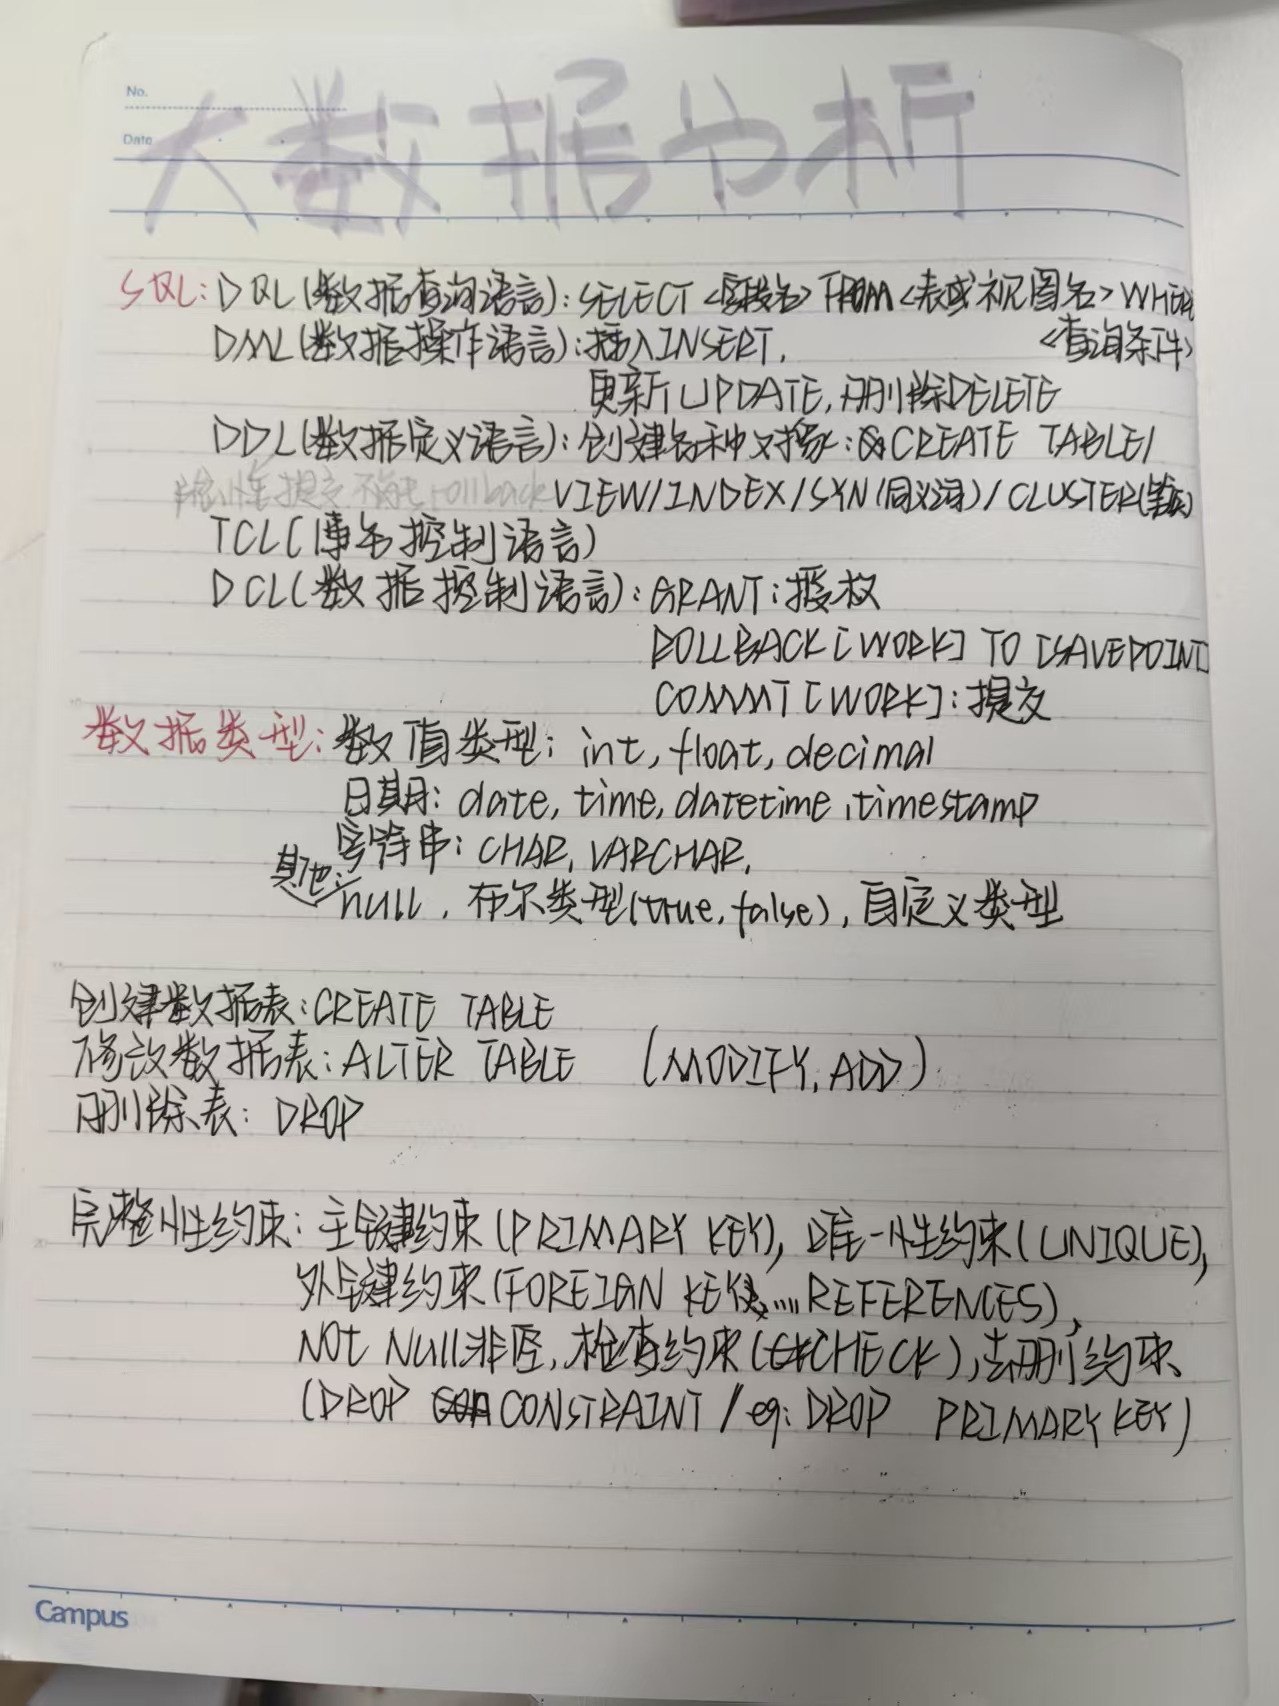 No.
Date
大数据分析
SQL: DQL(数据查询语言): SELECT <字段名> FROM <表或视图名> WHERE
<查询条件>
DML(数据操作语言): 插入INSERT,
更新UPDATE, 删除DELETE
DDL(数据定义语言): 创建各种对象: CREATE TABLE/
隐性提交不能rollback VIEW/INDEX/SYN(同义词)/CLUSTER(簇)
TCL(事务控制语言)
DCL(数据控制语言): GRANT: 授权
ROLLBACK [WORK] TO [SAVEPOINT]
COMMT [WORK]: 提交
数据类型: 数值类型: int, float, decimal
日期: date, time, datetime, timestamp
字符串: CHAR, VARCHAR,
其他: null, 布尔类型(true, false), 自定义类型
创建数据表: CREATE TABLE
修改数据表: ALTER TABLE (MODIFY, ADD)
删除表: DROP
完整性约束: 主键约束(PRIMARY KEY), 唯一性约束(UNIQUE),
外键约束(FOREIGN KEY, .... REFERENCES),
Not Null非空, 检查约束(CHECK), 去删约束
(DROP CONSTRAINT / eg: DROP PRIMARY KEY)
Campus